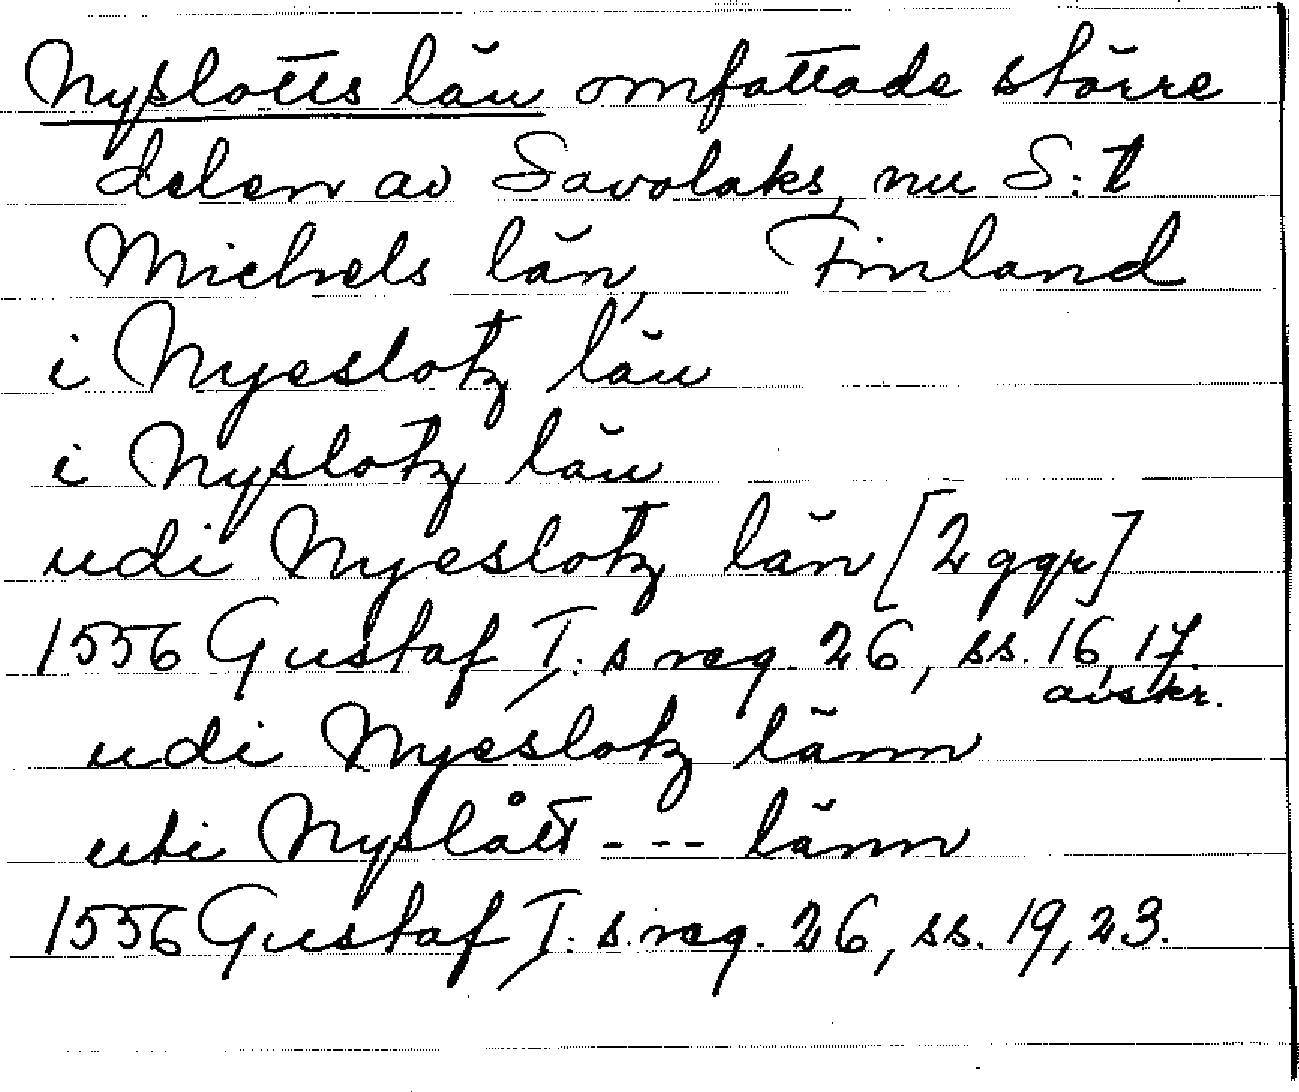 Nyslotts län omfattade större
delen av Savolaks, nu S:t
Michels län, Finland
i Nyeslotz län
i Nyslotz län
udi Nyeslotz län [2 ggr]
1556 Gustaf I:s reg. 26, ss. 16, 17.
avskr.
udi Nyeslotz länn
uti Nyslått --- länn
1556 Gustaf I:s reg. 26, ss. 19, 23.